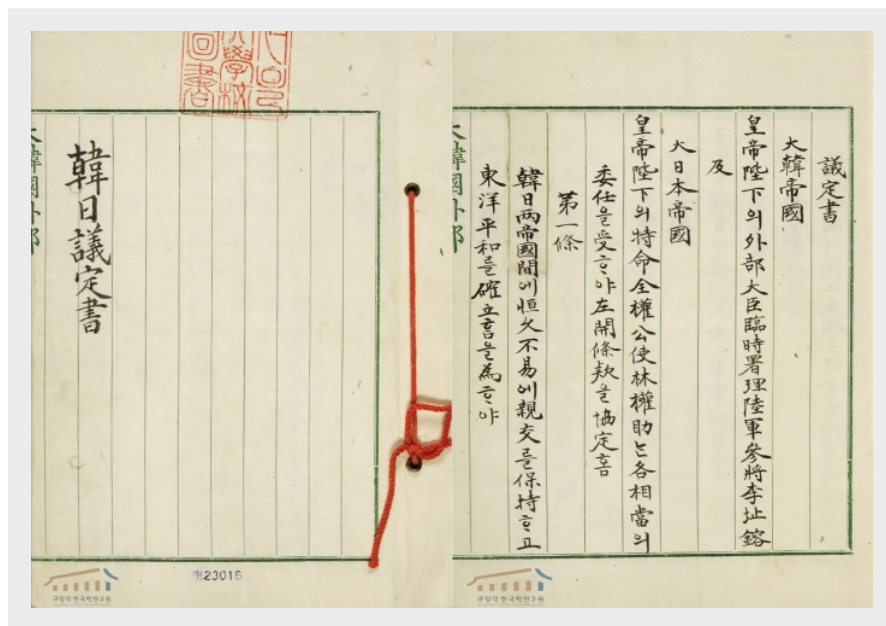 議定書
大韓帝國
皇帝陛下의外部大臣臨時署理陸軍參將李址鎔
及
大日本帝國
皇帝陛下의特命全權公使林權助는各相當의
委任을受ᄒᆞ야左開條欵을協定홈
第一條
韓日兩帝國間에恒久不易에親交를保持ᄒᆞ고
東洋平和를確立홈을為ᄒᆞ야
大韓國外部
韓日議定書
大韓國外部
圖書
奎23016
규장각한국학연구원
규장각한국학연구원